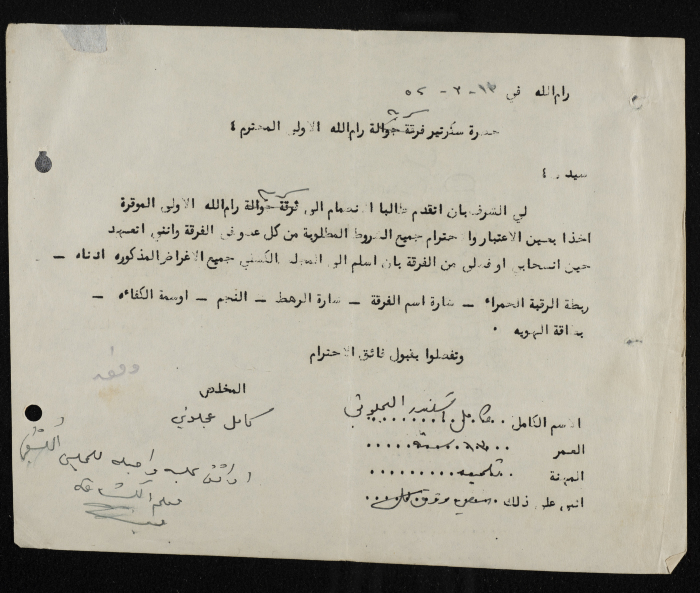 رام الله في ١٣ - ٦ - ٥٢
حضرة سكرتير فرقة جوالة رام الله الاولى المحترم ،
سيدي ،
لي الشرف بان اتقدم طالبا الانضمام الى فرقة جوالة رام الله الاولى الموقرة
اخذا بعين الاعتبار واحترام جميع الشروط المطلوبة من كل عضو في الفرقة وانني اتعهد
حين انسحابي او فصلي من الفرقة بان اسلم الى المجلس الكشفي جميع الاغراض المذكوره ادناه ــ
ربطة الرقبة الحمراء ــ شارة اسم الفرقة ــ شارة الرهط ــ النجم ــ اوسمة الكفاءه ــ
بطاقة الهويه .
وتفضلوا بقبول فائق الاحترام
المخلص
كامل عجلوني
الاسم الكامل: كامل اسكندر العجلوني
العمر سنة
المهنة . تلميذ
انهي على ذلك
اوافق عليه واحيله للمجلس الكشفي
معلم الكشافه